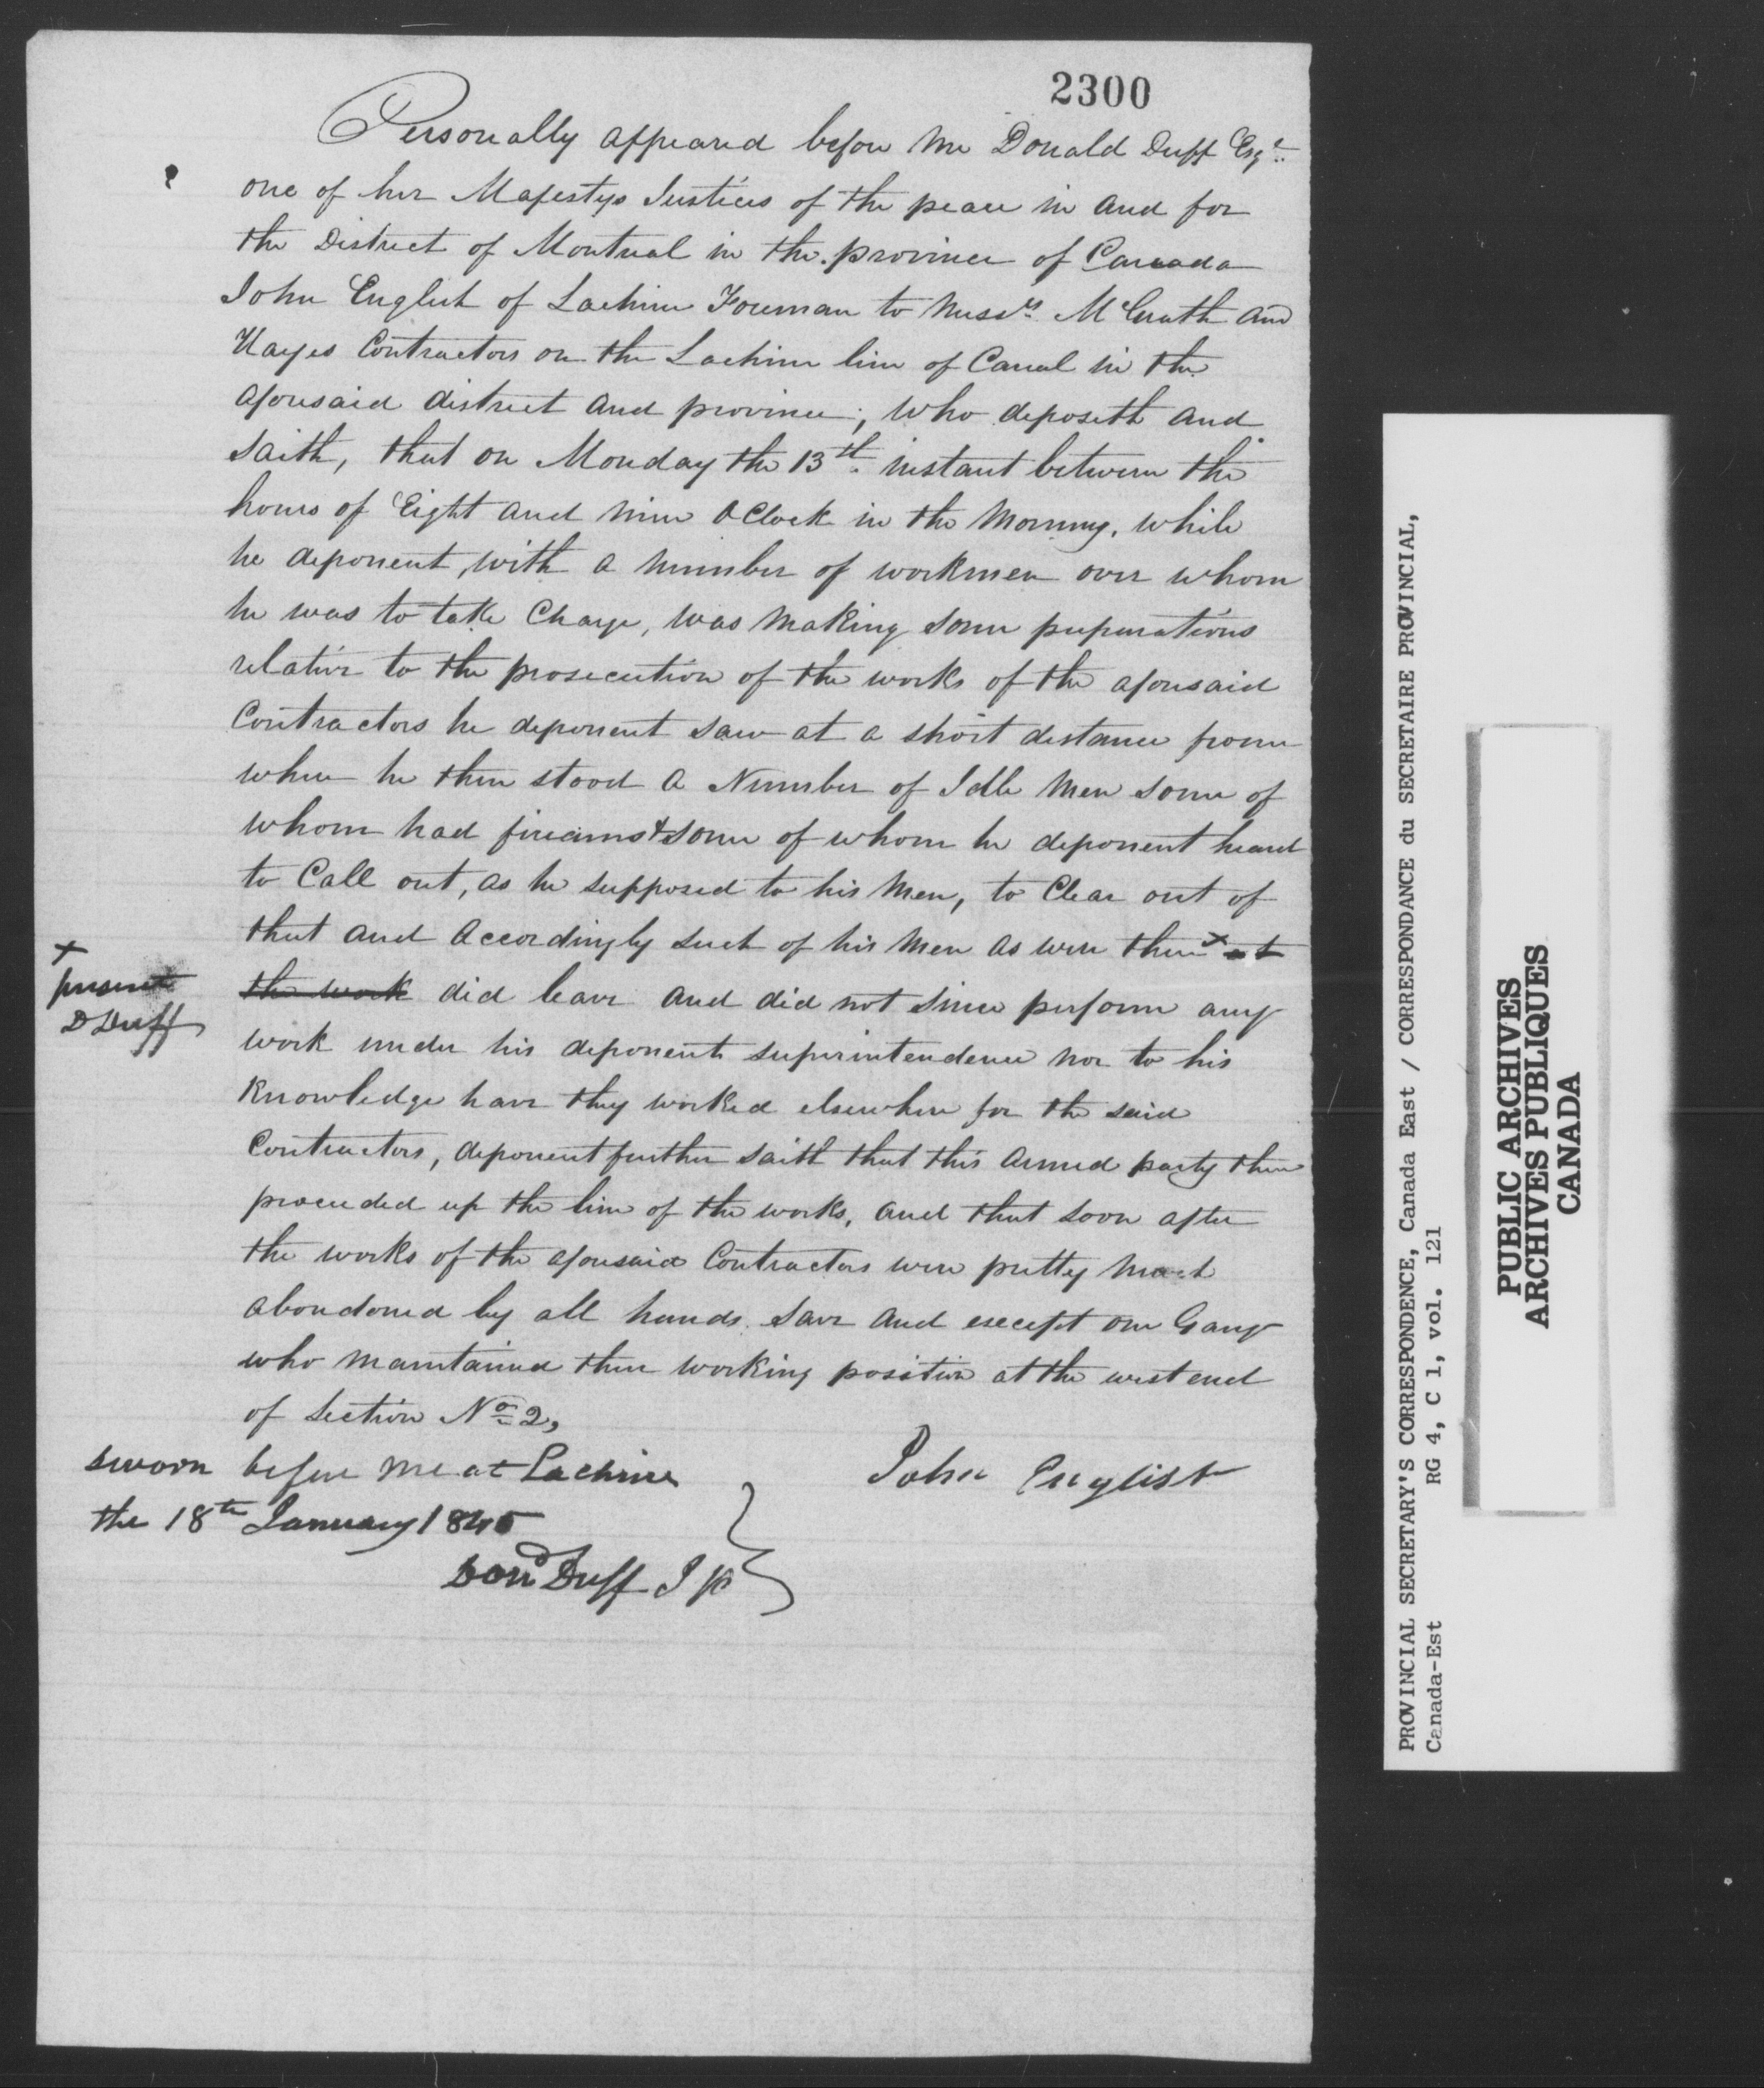 2300
Personally appeared before me Donald Duff Esqr.
one of her Majestys Justices of the peace in and for
the District of Montreal in the province of Canada
John English of Lachine Foreman to Messrs. McGrath and
Hayes Contractors on the Lachine line of Canal in the
aforesaid district and province; who deposeth and
saith, that on Monday the 13th. instant between the
hours of Eight and nine OClock in the Morning, while
he deponent, with a number of workmen over whom
he was to take Charge, was making some preparations
relative to the prosecution of the works of the aforesaid
Contractors he deponent saw at a short distance from
where he then stood a Number of Idle Men some of
whom had firearms & some of whom he deponent heard
to Call out, as he supposed to his Men, to Clear out of
that and accordingly such of his Men as were then x at
the work did leave and did not since perform any
x
present
D Duff
work under his deponents superintendence nor to his
knowledge have they worked elsewhere for the said
Contractors, deponent further saith that this armed party then
proceeded up the line of the works, and that soon after
the works of the aforesaid Contractors were pretty much
abondoned by all hands save and except one Gang
who maintained their working position at the west end
of Section No 2,
sworn before me at Lachine
the 18th January 1845
Dond Duff J P
John English
PROVINCIAL SECRETARY'S CORRESPONDENCE, Canada East / CORRESPONDANCE du SECRETAIRE PROVINCIAL,
Canada-Est RG 4, C 1, vol. 121
PUBLIC ARCHIVES
ARCHIVES PUBLIQUES
CANADA